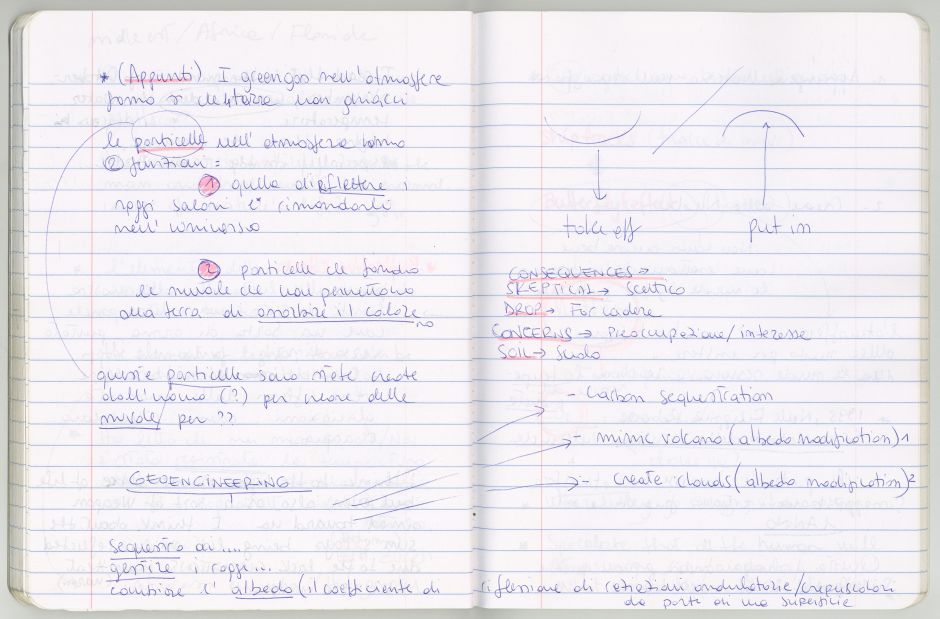 * (Appunti) I greengas nell'atmosfera
fanno sì che la terra non ghiacci
le particelle nell'atmosfera hanno
② funzioni:
① quella di riflettere i
raggi solari e rimandarli
nell'universo
② particelle che fanno
le nuvole che non permettono
alla terra di assorbire il calore
queste particelle sono state create
dall'uomo (?) per creare delle
nuvole per ??
GEOENGINEERING
sequestro di....
gestire i raggi...
cambiare l'albedo (il coefficiente di
take off
put in
CONSEQUENCES →
SKEPTICAL → Scettico
DROP → Far cadere
CONCERNS → Preoccupazione/interesse
SOIL → Suolo
- Carbon sequestration
- mimic volcano (albedo modification) 1
- create clouds (albedo modification) 2
riflessione di radiazioni ondulatorie/crepuscolari
da parte di una superficie